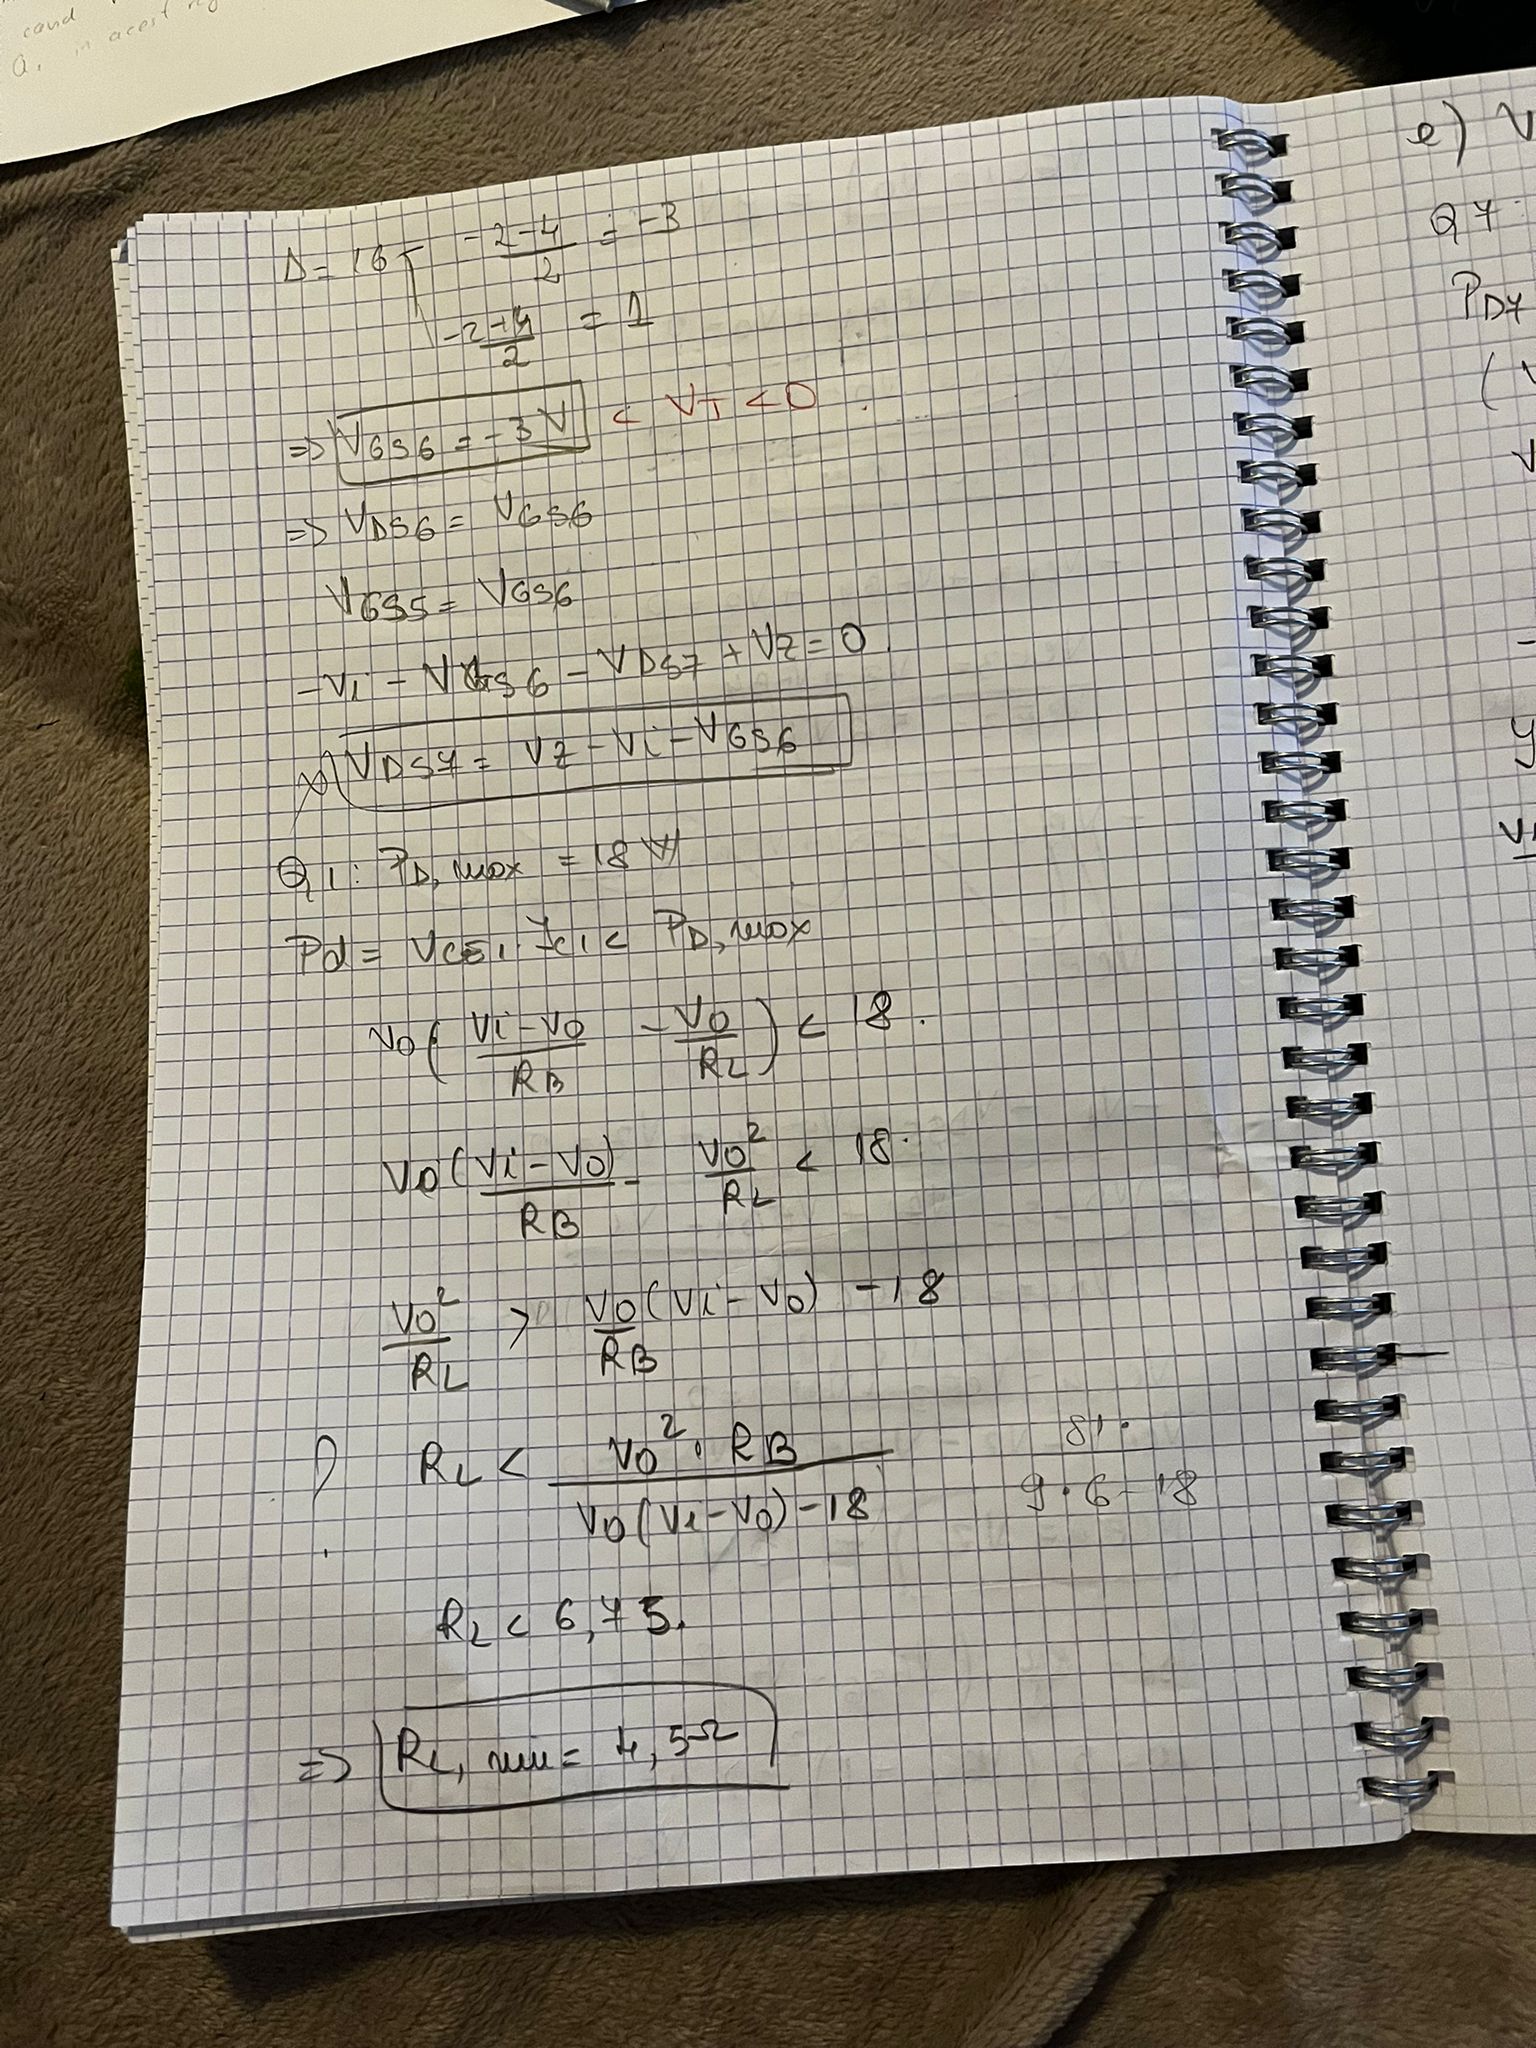 cand
Q, in acest reg
Δ = 16 (-2-4)/2 = -3
(-2+4)/2 = 1
=> VGS6 = -3V < VT < 0.
=> VDS6 = VGS6
VGS5 = VGS6
-Vi - VGS6 - VDS7 + VZ = 0.
VDS7 = VZ - Vi - VGS6
Q1: PD, max = 18 W
Pd = VCE1 · IC1 < PD, max
VO ( (Vi - VO)/RB - VO/RL ) < 18.
VO (Vi - VO)/RB - VO²/RL < 18.
VO²/RL > VO/RB (Vi - VO) - 18
? RL < (VO² · RB)/(VO (Vi - VO) - 18) 81·/(9·6-18)
RL < 6,75.
=> RL, min = 4,5Ω
e) V
Q7:
PD7
(V